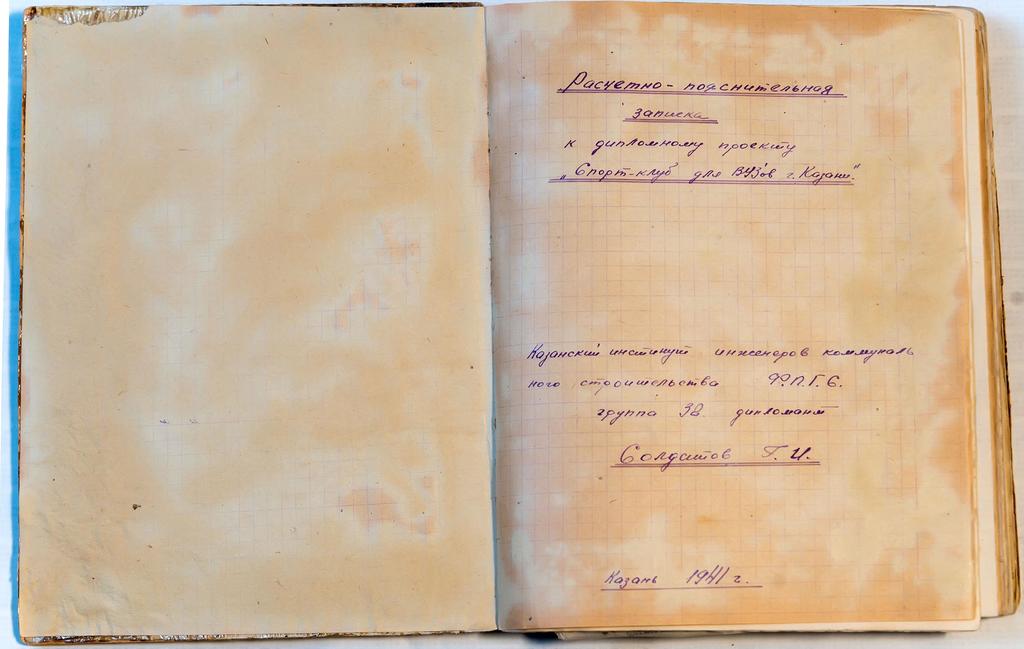 Расчетно-пояснительная
записка
к дипломному проекту
„Спорт-клуб для ВУЗ'ов г. Казани."
Казанский институт инженеров коммуналь
ного строительства Ф.П.Г.С.
группа 38. дипломант
Солдатов Г. И.
Казань 1941 г.